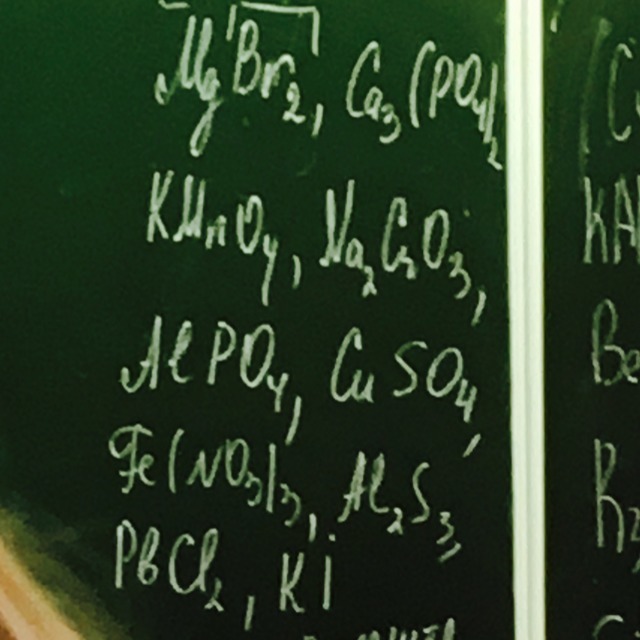 MgBr₂, Ca₃(PO₄)₂
KMnO₄, Na₂CO₃,
AlPO₄, CuSO₄,
Fe(NO₃)₃, Al₂S₃,
PbCl₂, KI